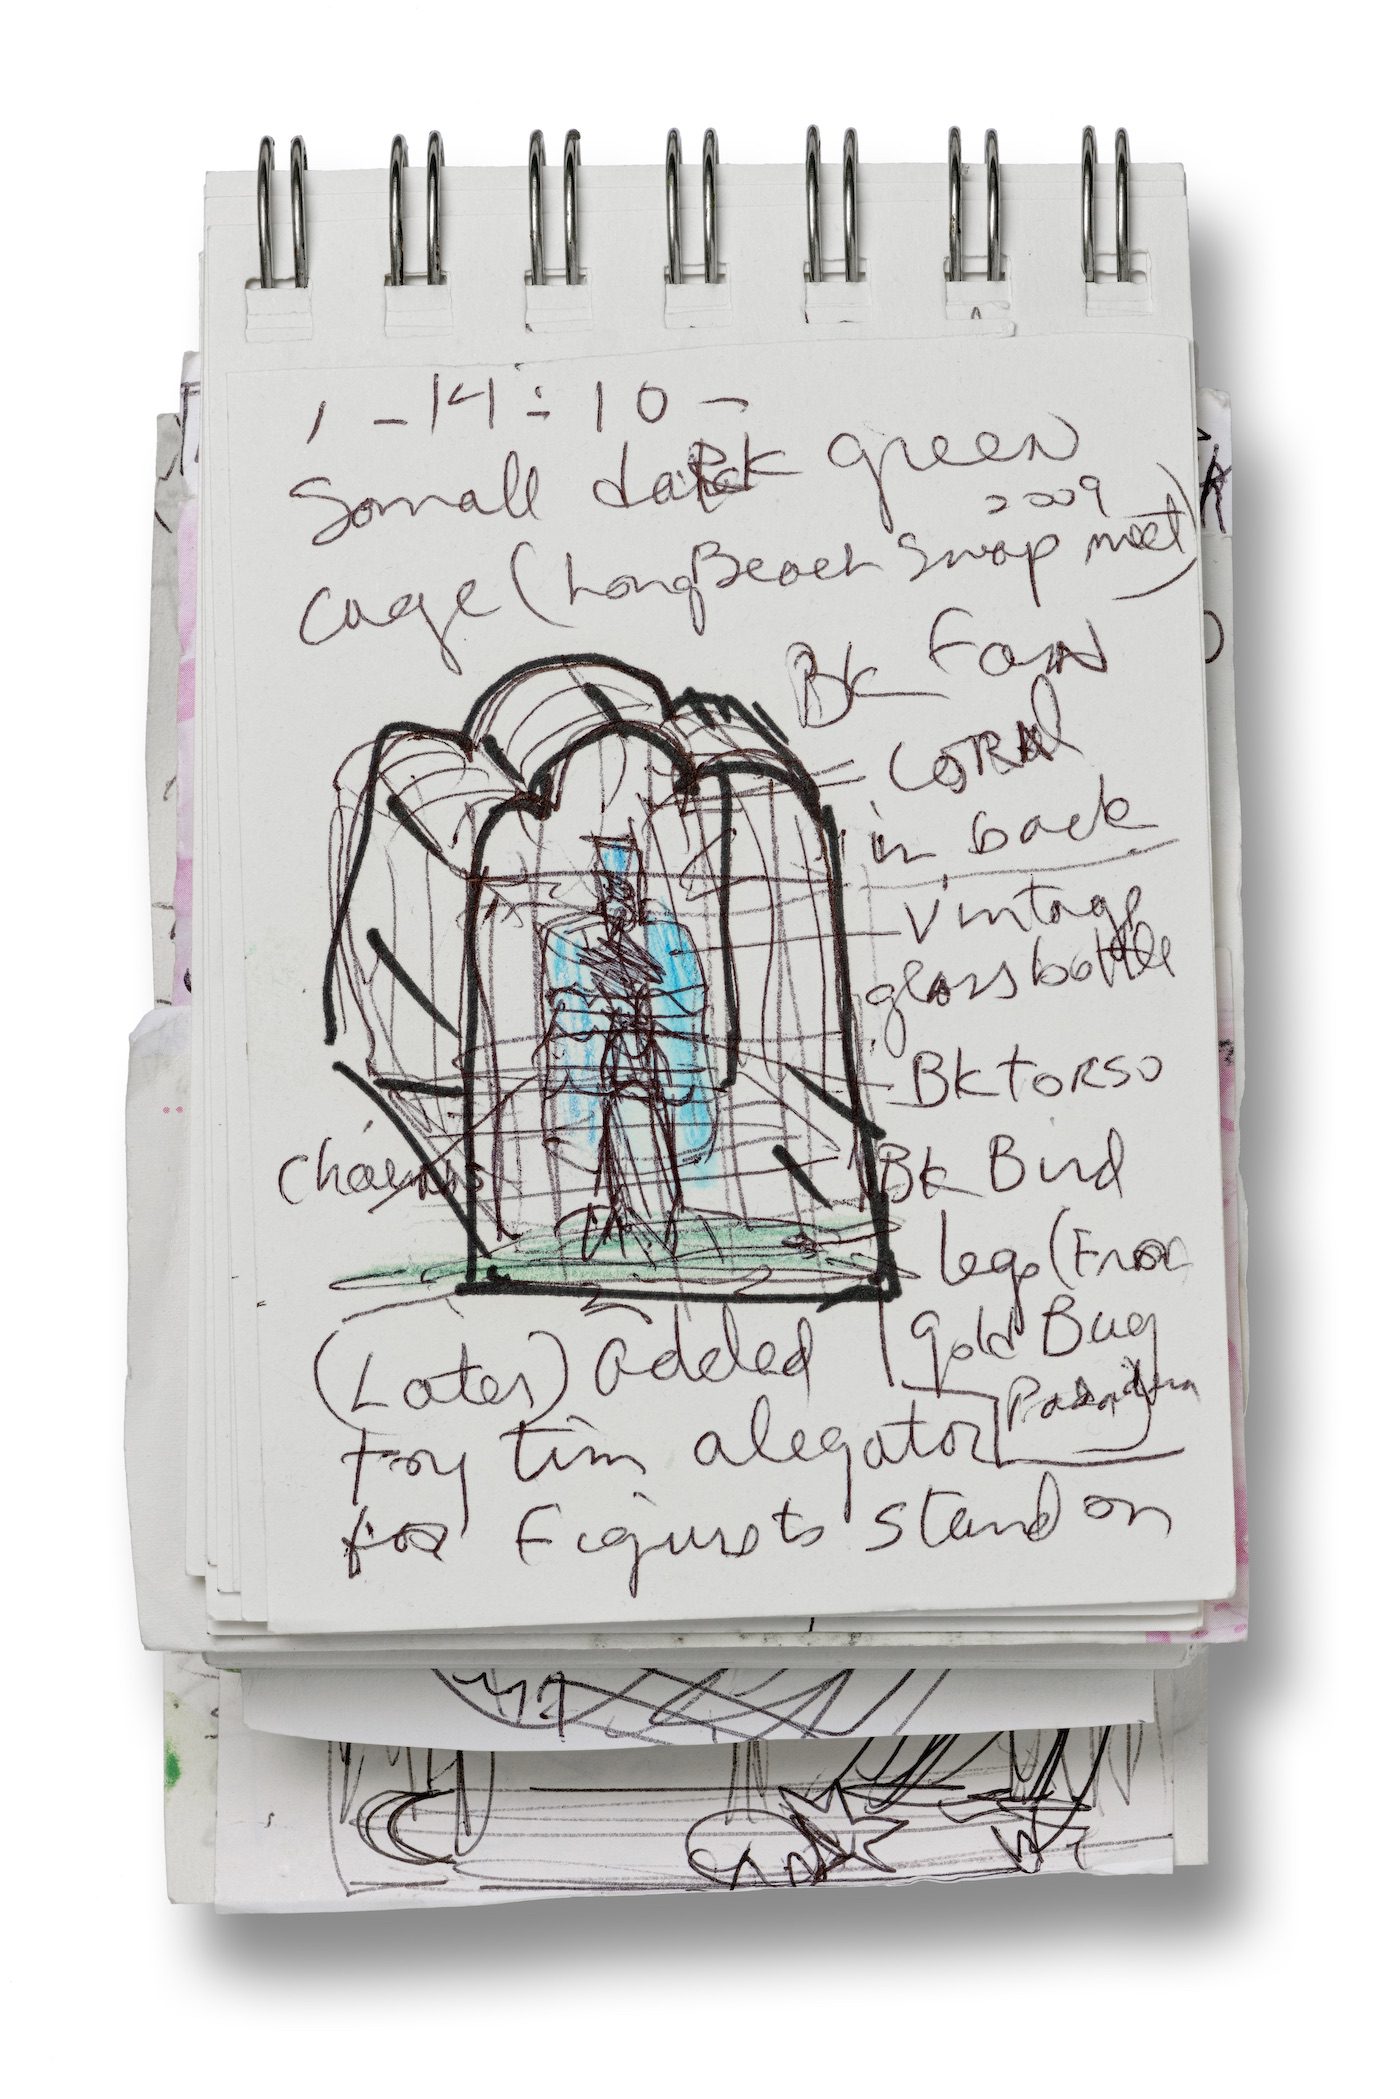 1-14-10-
Small dark green
2009
cage (Long Beach Swap meet)
BK Fan
CORAl
in back
Vintage
glass bottle
BK TORSO
Charms
BK Bird
legs (From
gold Bug
Pasadena
(Later) added
Toy tim alegator
for Figure to stand on